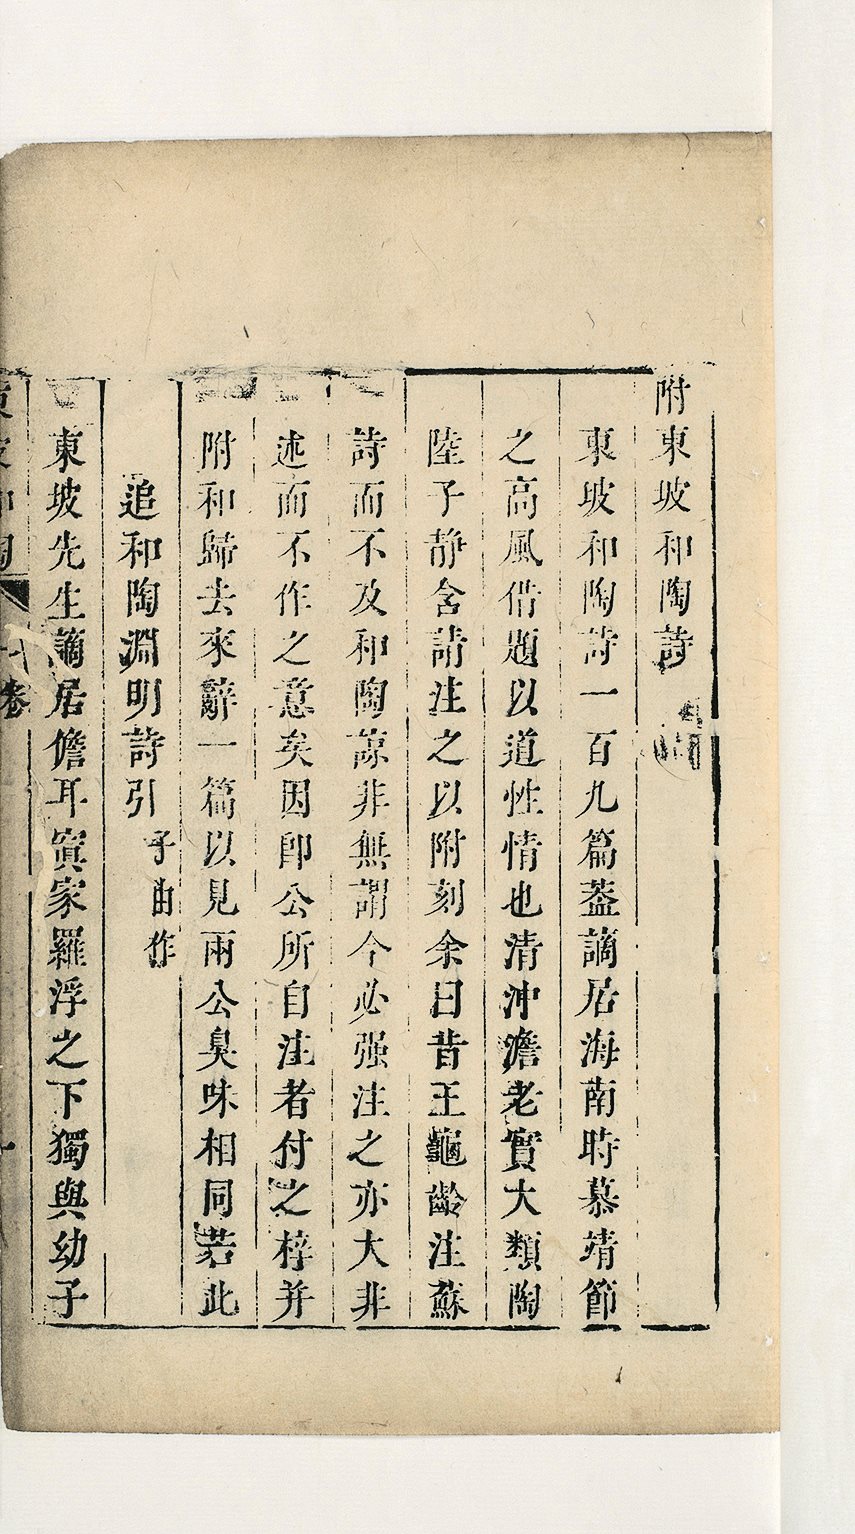 附東坡和陶詩
東坡和陶詩一百九篇葢謫居海南時慕靖節
之高風借題以道性情也清沖澹老實大類陶
陸子靜含請注之以附刻余曰昔王龜齡注蘇
詩而不及和陶諒非無謂今必强注之亦大非
述而不作之意矣因卽公所自注者付之梓并
附和歸去來辭一篇以見兩公臭味相同若此
追和陶淵明詩引 子由作
東坡先生謫居儋耳寘家羅浮之下獨與幼子
東坡和陶 卷 一